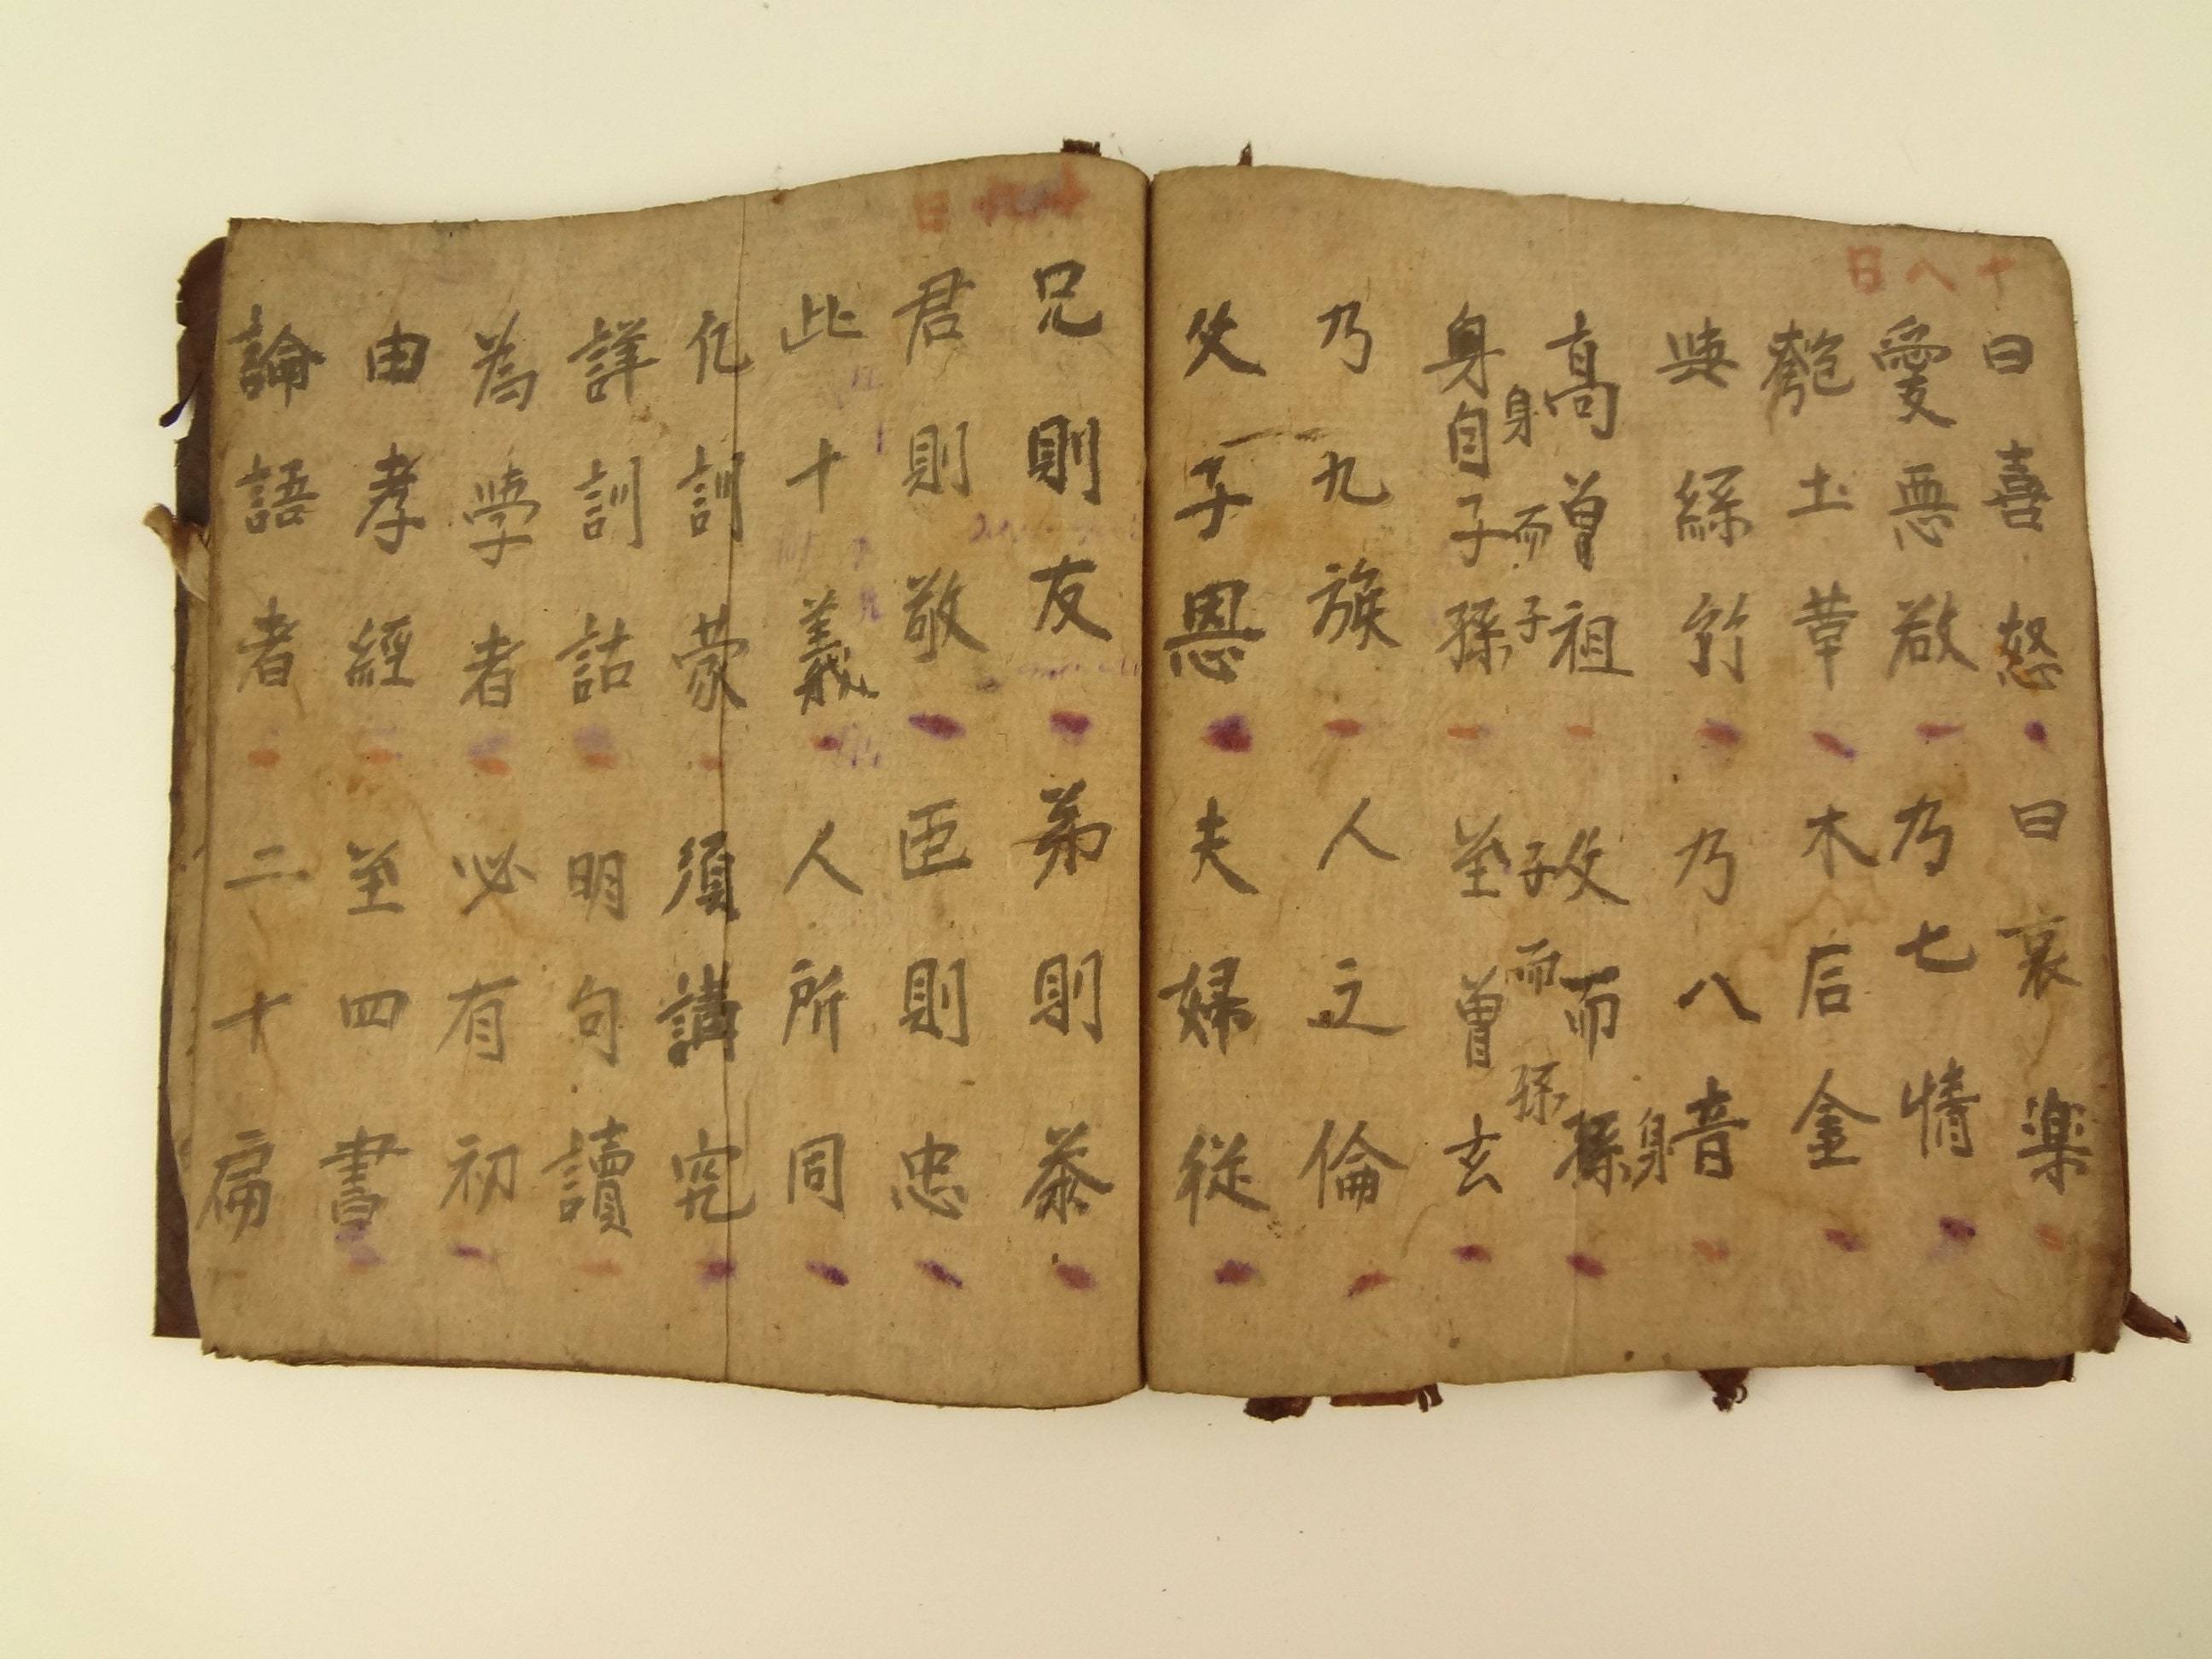 十八日
曰喜怒曰哀楽
愛悪欲乃七情
匏土革木石金
與絲竹乃八音
高曾祖父而孫身
身而子子而孫
身自子孫至曾玄
乃九族人之倫
父子恩夫婦從
日
兄則友弟則恭
君則敬臣則忠
此十義人所同
凡訓蒙須講究
詳訓詁明句讀
為学者必有初
由孝經至四書
論語者二十扁